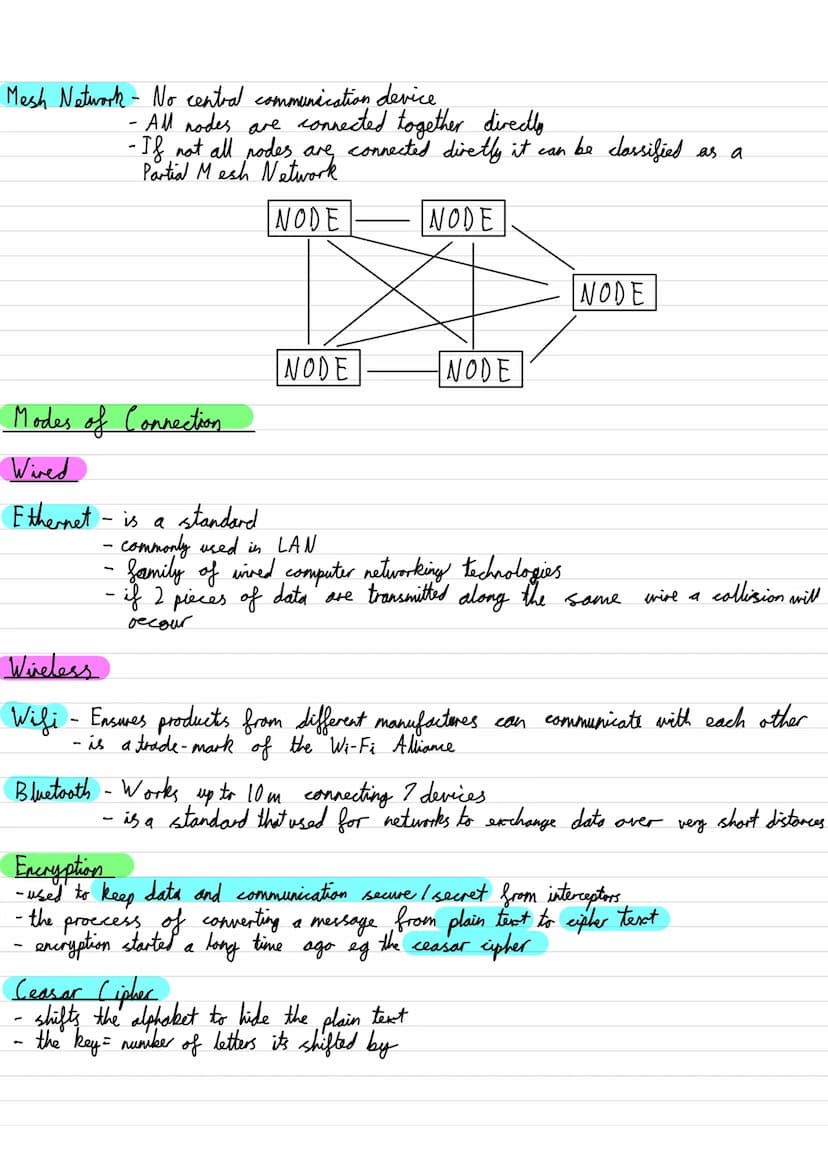 Mesh Network - No central communication device
- All nodes are connected together directly
- If not all nodes are connected directly it can be classified as a
Partial Mesh Network
NODE NODE
NODE
NODE NODE
Modes of Connection
Wired
Ethernet - is a standard
- commonly used in LAN
- family of wired computer networking technologies
- if 2 pieces of data are transmitted along the same wire a collision will
occur
Wireless
Wifi - Ensures products from different manufactures can communicate with each other
- is a trade-mark of the Wi-Fi Alliance
Bluetooth - Works up to 10m connecting 7 devices
- is a standard that used for networks to exchange data over very short distances
Encryption
- used to keep data and communication secure/secret from interceptors
- the proccess of converting a message from plain text to cipher text
- encryption started a long time ago eg the ceasar cipher
Ceasar Cipher
- shifts the alphabet to hide the plain text
- the key = number of letters its shifted by